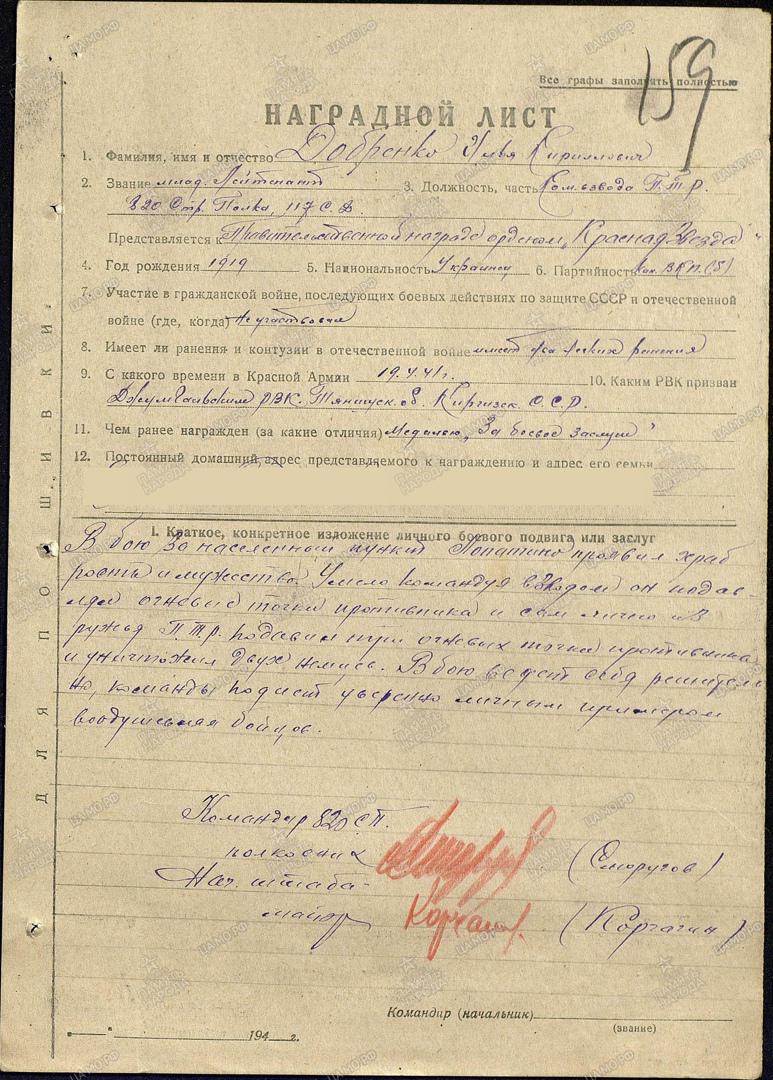 159
Все графы заполнять полностью
НАГРАДНОЙ ЛИСТ
1. Фамилия, имя и отчество Добренко Илья Кириллович
2. Звание млад. Лейтенант 3. Должность, часть Ком. взвода П.Т.Р.
820 Стр. Полка, 117 С.Д.
Представляется к Правительственной награде орденом „Красная Звезда"
4. Год рождения 1919 5. Национальность Украинец 6. Партийность Кан. ВКП(б)
7. Участие в гражданской войне, последующих боевых действиях по защите СССР и отечественной
войне (где, когда) Не участвовал
8. Имеет ли ранения и контузии в отечественной войне имеет два легких ранения
9. С какого времени в Красной Армии 19.4.41г. 10. Каким РВК призван
Джумгальским РВК. Тянщуск. об. Киргизск. С.С.Р.
11. Чем ранее награжден (за какие отличия) Медалью „За боевые заслуги"
12. Постоянный домашний адрес представляемого к награждению и адрес его семьи
I. Краткое, конкретное изложение личного боевого подвига или заслуг
В бою за населенный пункт Лопатино проявил храб
рость и мужество. Умело командуя взводом он подав-
лял огневые точки противника и сам лично из
ружья П.Т.Р. подавил три огневых точки противника
и уничтожил двух немцев. В бою ведет себя решитель
но, команды подает уверенно личным примером
воодушевляя бойцов.
Командир 820 СП.
полковник (Сморугов)
Нач. штаба
майор Корчагин (Корчагин)
Командир (начальник)
(звание)
„ " 194 г.
ДЛЯ ПОШИВКИ
ЦАМО.РФ
ПАМЯТЬ НАРОДА